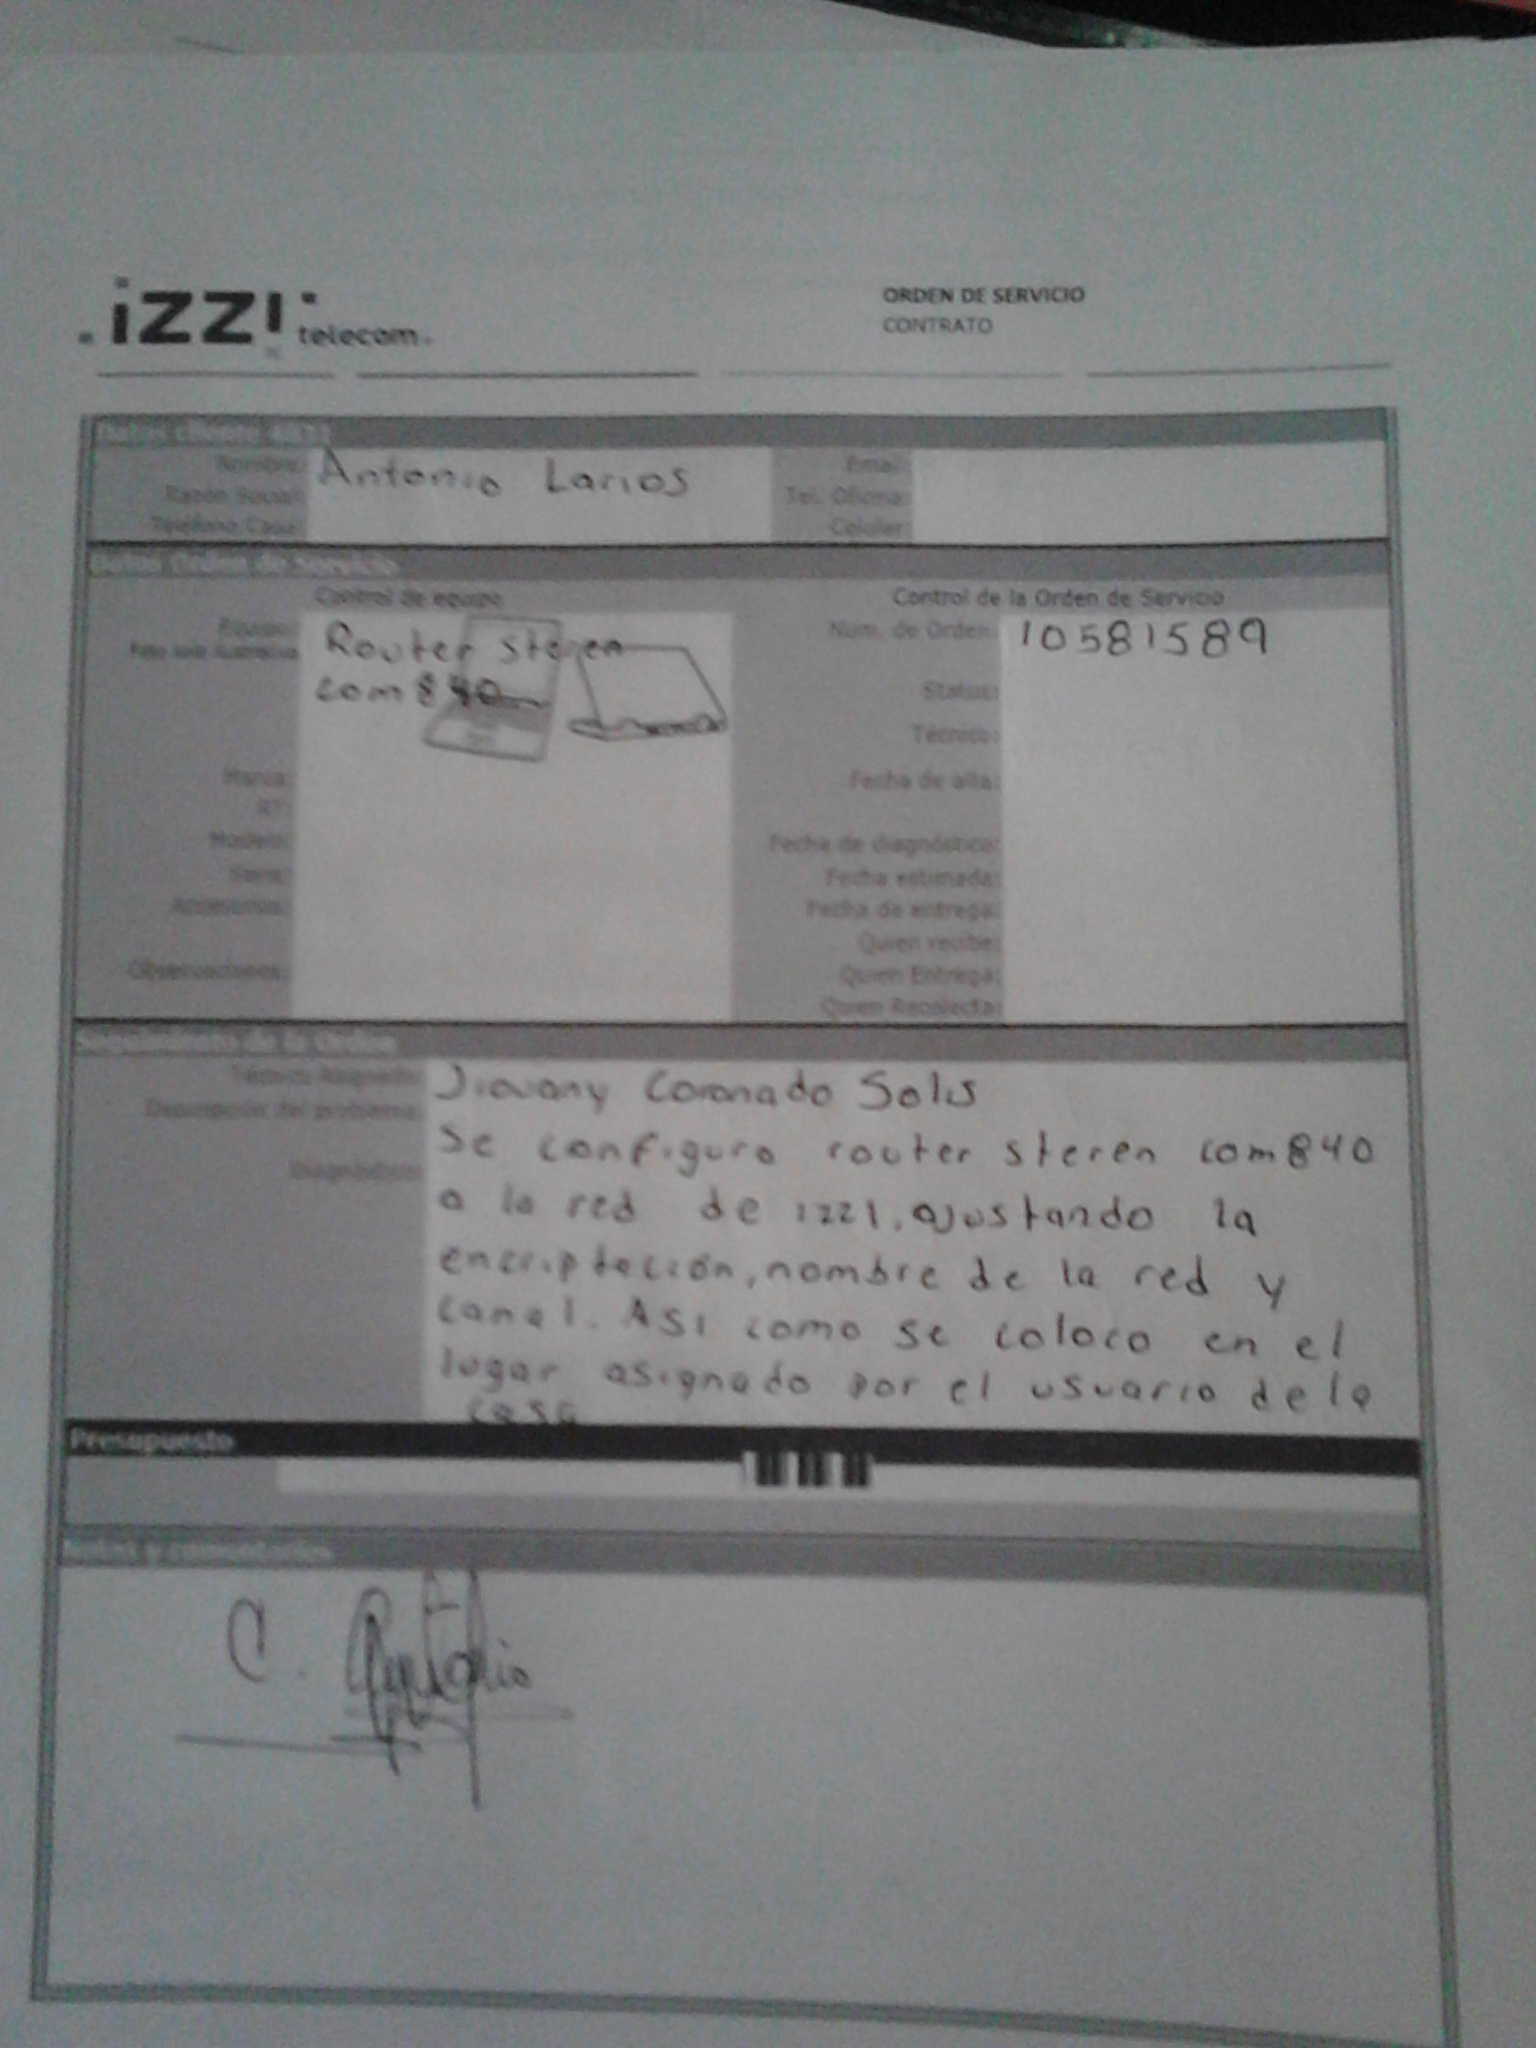 izzi telecom
ORDEN DE SERVICIO
CONTRATO
Datos cliente
Nombre: Antonio Larios
Razón Social:
Teléfono Casa:
Email:
Tel. Oficina:
Celular:
Datos Orden de Servicio
Control de equipo
Equipo: Router steren
com840
Foto solo ilustrativa
Marca:
Modelo:
Serie:
Accesorios:
Observaciones:
Control de la Orden de Servicio
Num. de Orden: 10581589
Status:
Técnico:
Fecha de alta:
Fecha de diagnóstico:
Fecha estimada:
Fecha de entrega:
Quien recibe:
Quien Entrega:
Quien Recolecta:
Seguimiento de la Orden
Técnico Asignado: Jiovany Coronado Solis
Descripción del problema:
Diagnóstico:
Se configuro router steren com840
a la red de izzi, ajustando la
encriptación, nombre de la red y
canal. Asi como se coloco en el
lugar asignado por el usuario de la
casa
Presupuesto
Notas y comentarios
C. Antonio